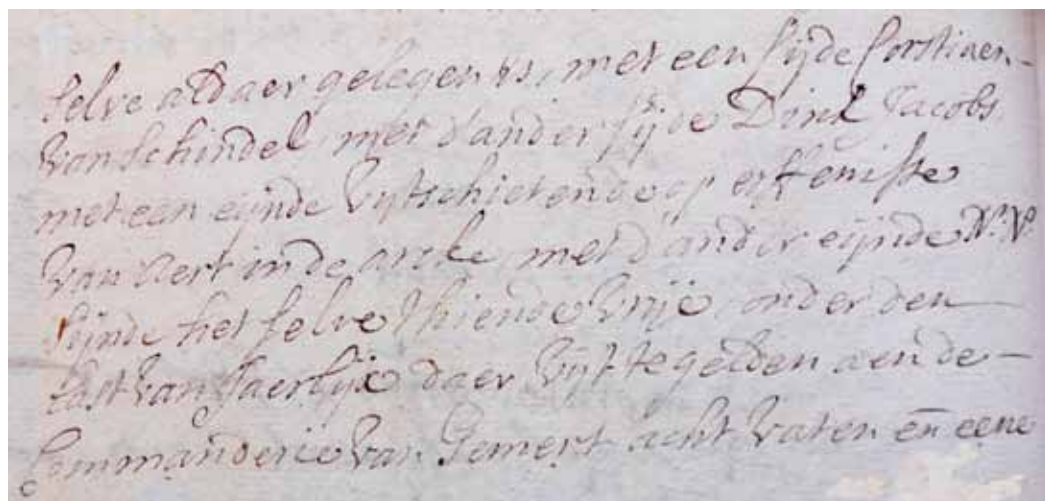 selve aldaer gelegen is, met een sijde Corstiaen
van Schindel, met d'ander sijde Dirck Jacobs
met een eijnde uytschietende op erffenisse
van Aert in de arcke met d'ander eijnde N: N:
sijnde het selve thiende vrije onder den
last van Jaerlijx daer uijt te gelden aen de
Commanderie van Gemert acht vaten en eene